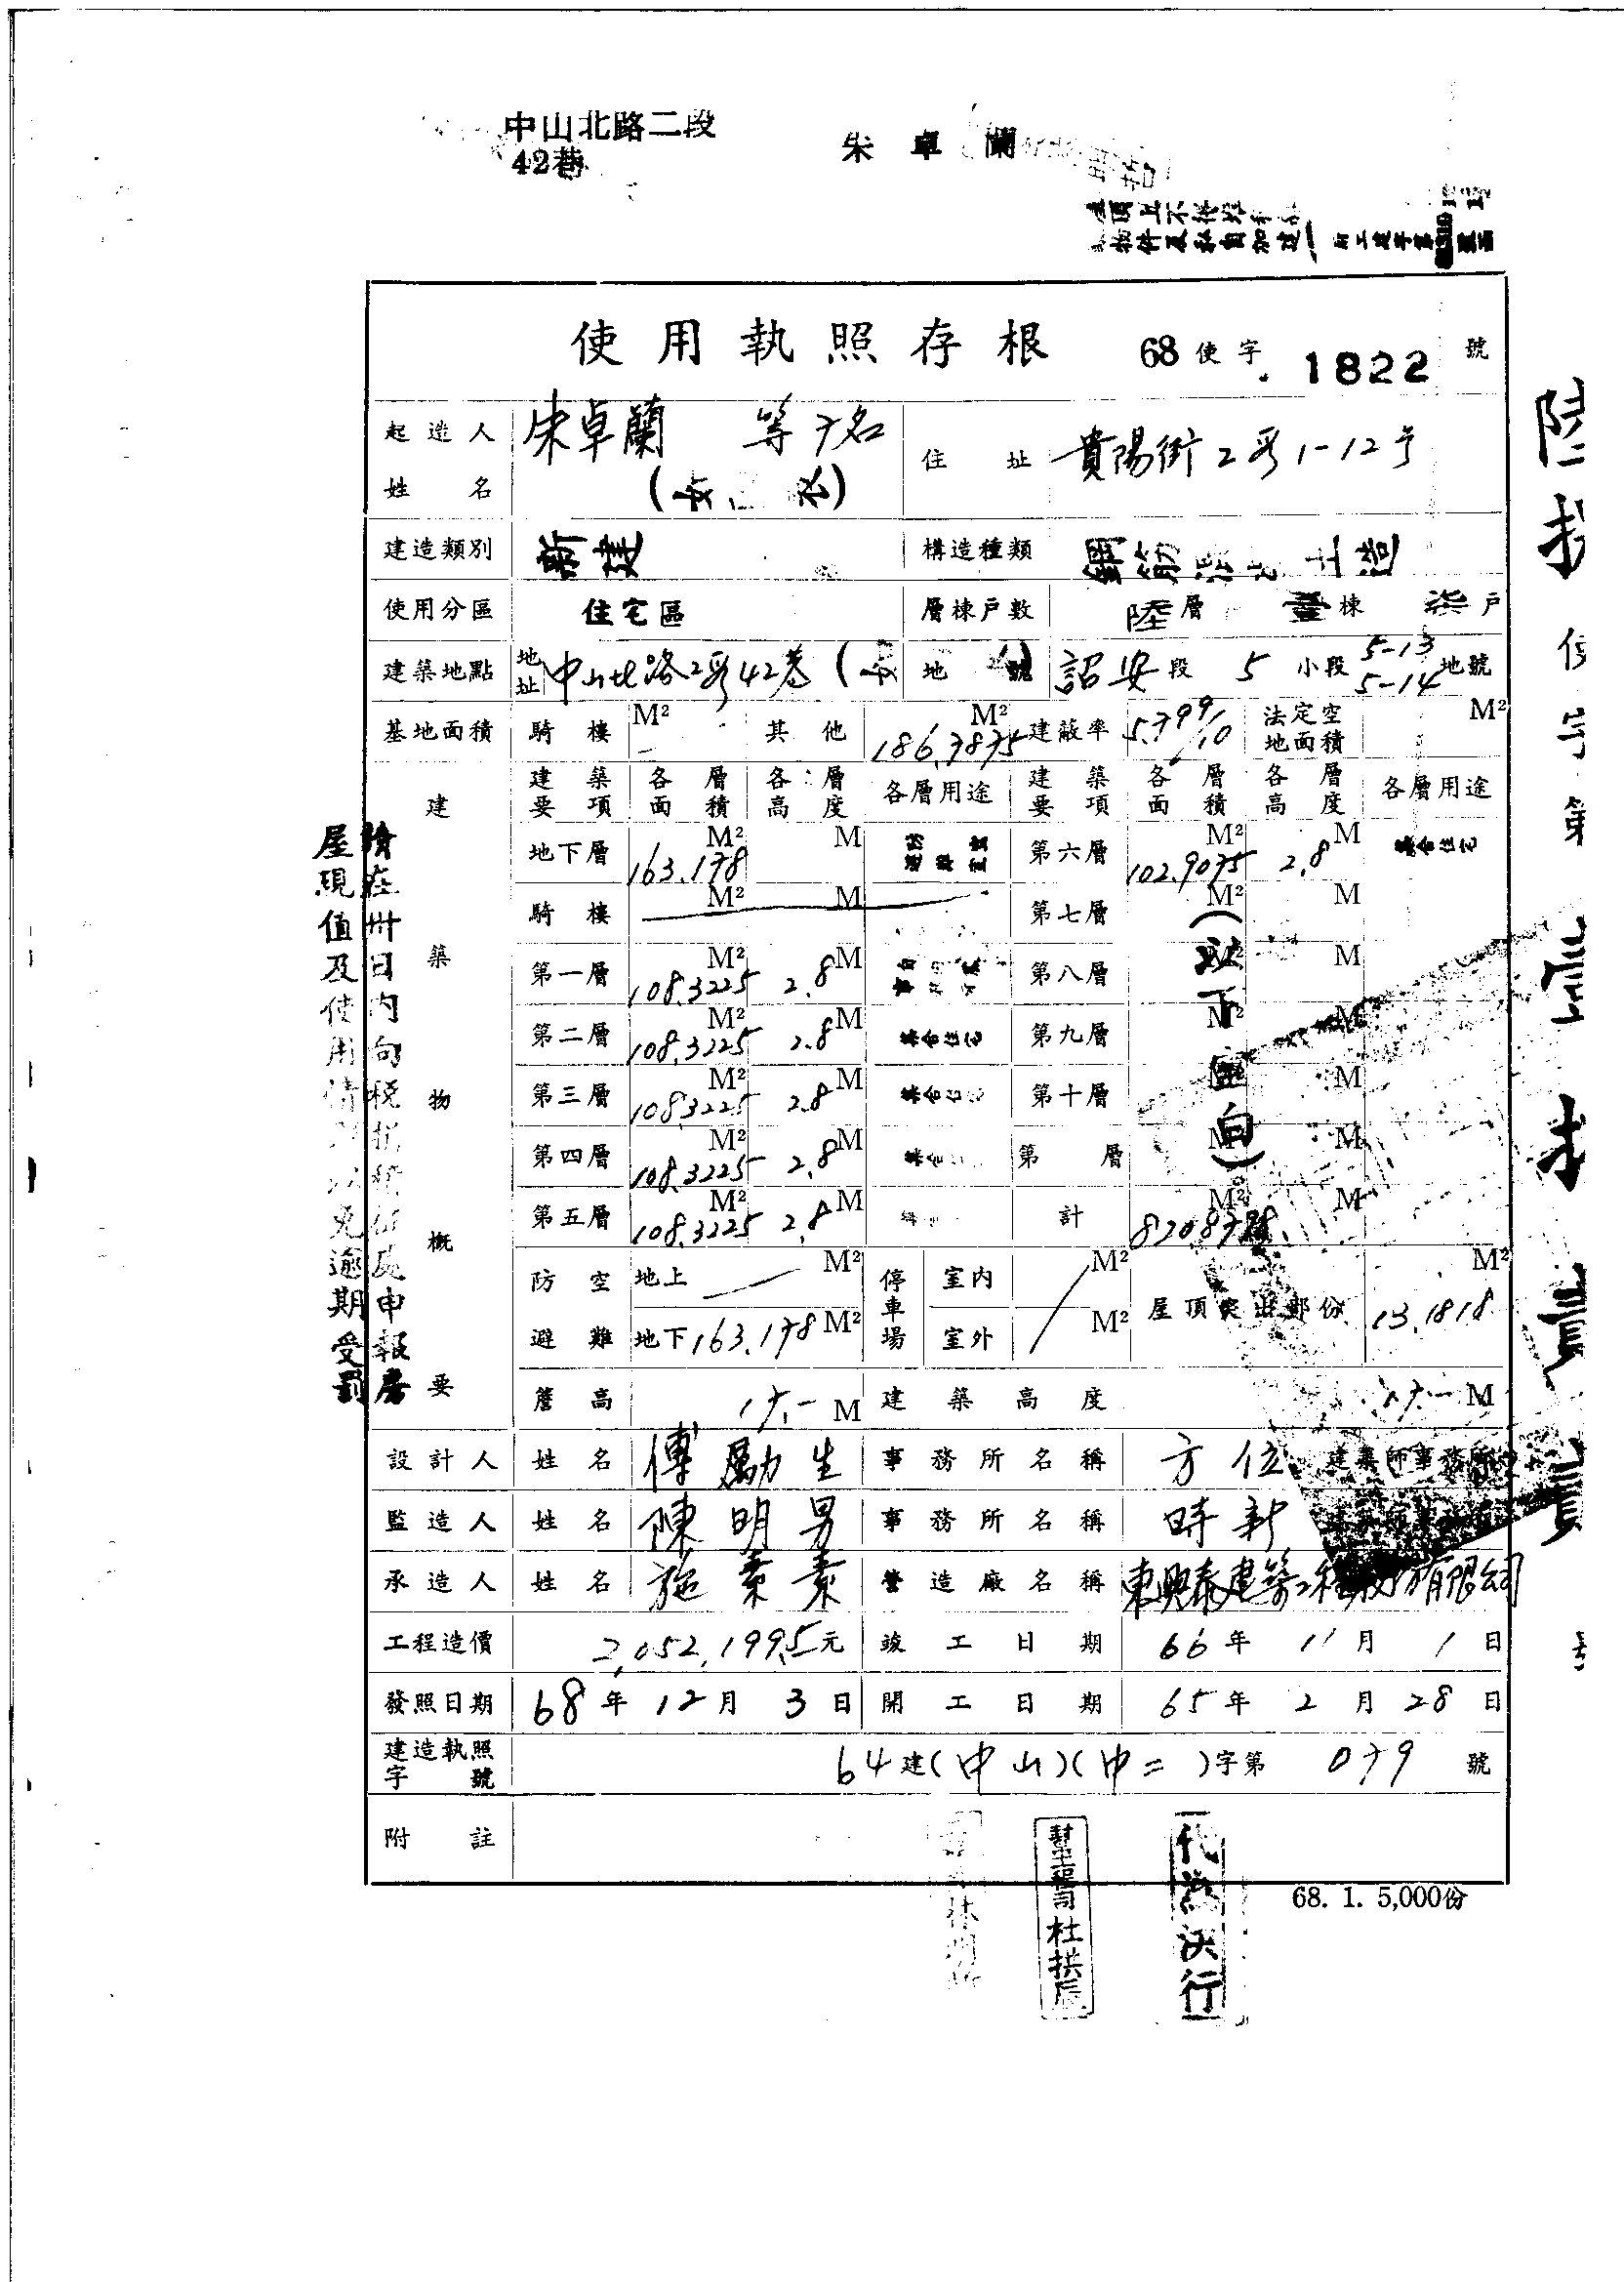 中山北路二段
42巷
朱卓蘭
使用執照存根 68使字 1822 號
起造人姓名 朱卓蘭 等7名 住址 貴陽街2段1-12号
建造類別 新建 構造種類 鋼筋 土造
使用分區 住宅區 層棟戶數 陸層 壹棟 柒戶
建築地點 地址 中山北路2段42巷 地號 詔安段 5 小段 5-13 5-14 地號
基地面積 騎樓 M² 其他 186.7875 M² 建蔽率 5.799/10 法定空地面積 M²
建築物概要
建築要項 各層面積 各層高度 各層用途 建築要項 各層面積 各層高度 各層用途
地下層 163.178 M² M 第六層 102.9075 M² 2.8 M 集合住宅
騎樓 M² M 第七層 M² M
第一層 108.3225 M² 2.8 M 第八層 M² M
第二層 108.3225 M² 2.8 M 集合住宅 第九層 M² M
第三層 108.3225 M² 2.8 M 集合住宅 第十層 M² M
第四層 108.3225 M² 2.8 M 第 層 M² M
第五層 108.3225 M² 2.8 M 計 M² M
(以下空白)
防空避難 地上 M² 停車場 室內 M² 屋頂突出部份 13.1818 M²
地下 163.178 M² 室外 M²
簷高 17.- M 建築高度 17.- M
設計人 姓名 傅勵生 事務所名稱 方位 建築師事務所
監造人 姓名 陳明男 事務所名稱 時新
承造人 姓名 施素素 營造廠名稱 東興泰建築工程股份有限公司
工程造價 2,052,199.5元 竣工日期 66年11月1日
發照日期 68年12月3日 開工日期 65年2月28日
建造執照字號 64建(中山)(中二)字第 079 號
附註
68. 1. 5,000份
請在卅日內向稅捐稽征處申報房
屋現值及使用情形以免逾期受罰
杜拱辰
代為決行